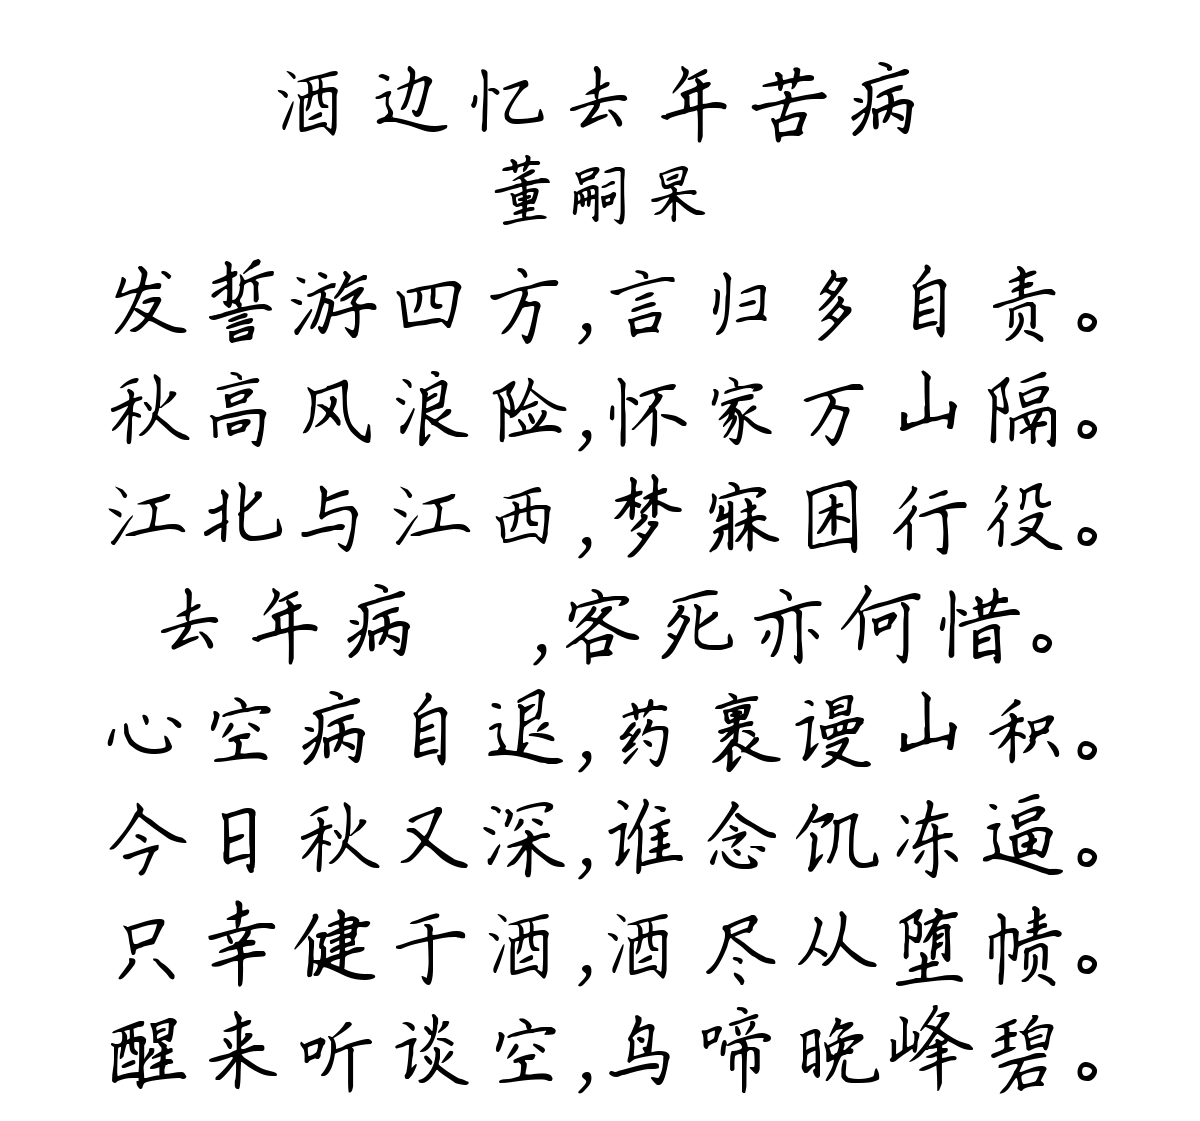 酒边忆去年苦病
董嗣杲
发誓游四方,言归多自责。
秋高风浪险,怀家万山隔。
江北与江西,梦寐困行役。
去年病 ,客死亦何惜。
心空病自退,药裹谩山积。
今日秋又深,谁念饥冻逼。
只幸健于酒,酒尽从堕帻。
醒来听谈空,鸟啼晚峰碧。